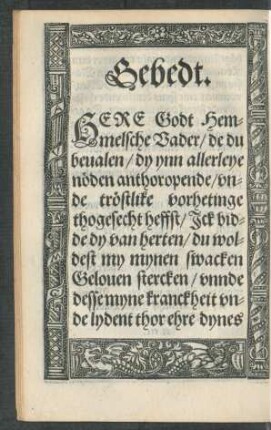 Gebedt.
HERE Godt Hem-
melsche Vader/ de du
beualen/ dy ynn allerleye
nöden anthoropende/ vn-
de tröstlike vorhetinge
thogesecht heffst/ Jck bid-
de dy van herten/ du wol-
dest my mynen swacken
Gelouen stercken/ vnnde
desse myne kranckheit vn-
de lydent thor ehre dynes